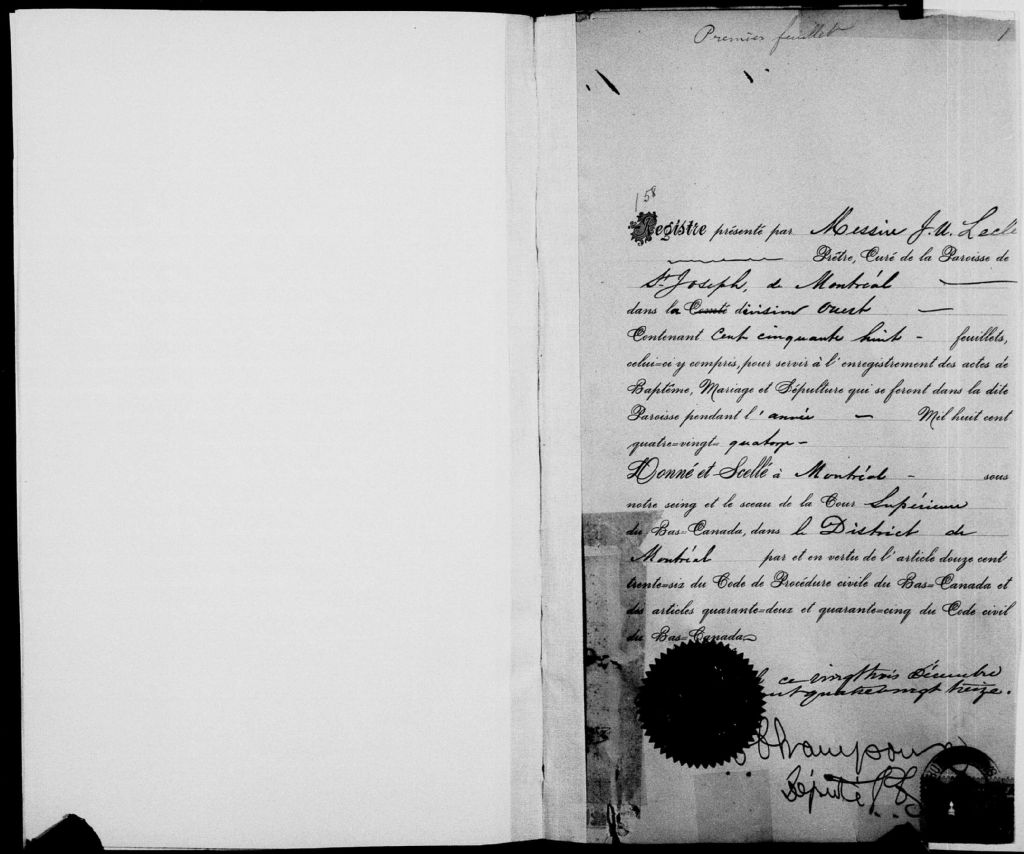 Premier feuillet
1
158
Registre présenté par Messire J. U. Lecle
Prêtre, Curé de la Paroisse de
St Joseph, de Montréal
dans la Comté division Ouest
Contenant Cent cinquante huit - feuillets,
celui=ci y compris, pour servir à l'enregistrement des actes de
Baptême, Mariage et Sépulture qui se feront dans la dite
Paroisse pendant l'année — Mil huit cent
quatre=vingt= quatorze -
Donné et Scellé à Montréal - sous
notre seing et le sceau de la Cour Supérieure
du Bas=Canada, dans le District de
Montréal par et en vertu de l'article douze cent
trente=six du Code de Procédure civile du Bas=Canada et
des articles quarante=deux et quarante=cinq du Code civil
du Bas=Canada
ce vingt trois Décembre
quatrevingt treize.
Député P.